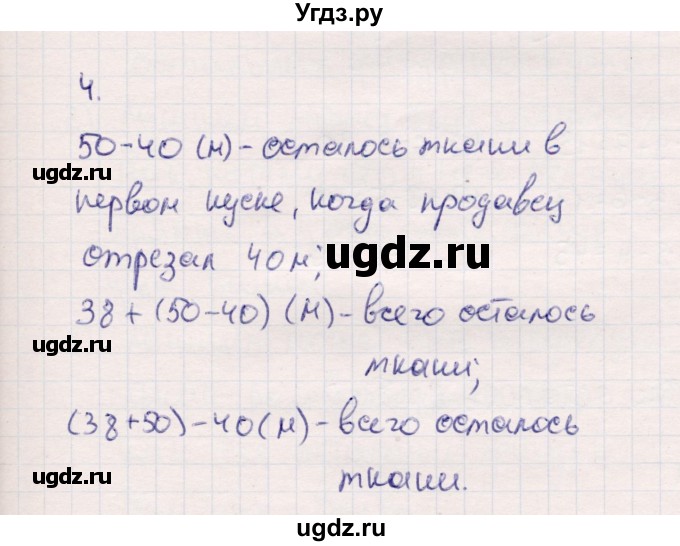 Угдз.ру
4.
50-40 (м) - осталось ткани в
ugdz.ru
первом куске, когда продавец
отрезал 40 м;
ugdz.ru
38 + (50-40) (м) - всего осталось
ugdz.ru
ткани;
(38+50) - 40 (м) - всего осталось
ugdz.ru
ткани.
ugdz.ru